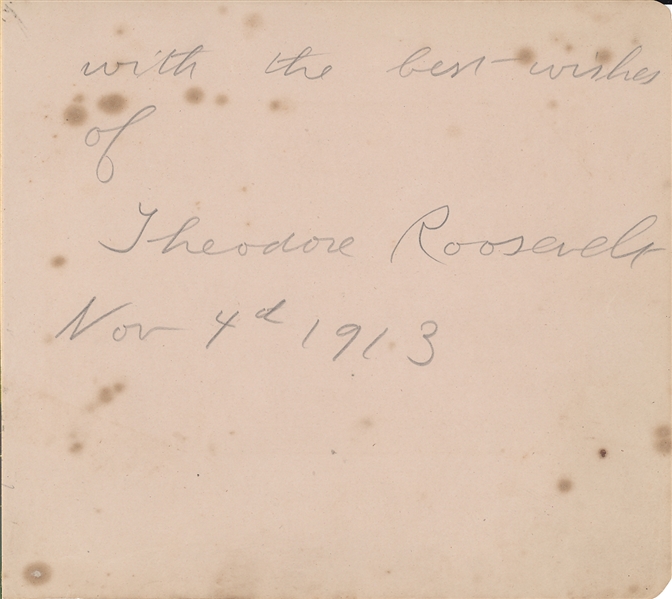 with the best wishes
of
Theodore Roosevelt
Nov 4d 1913